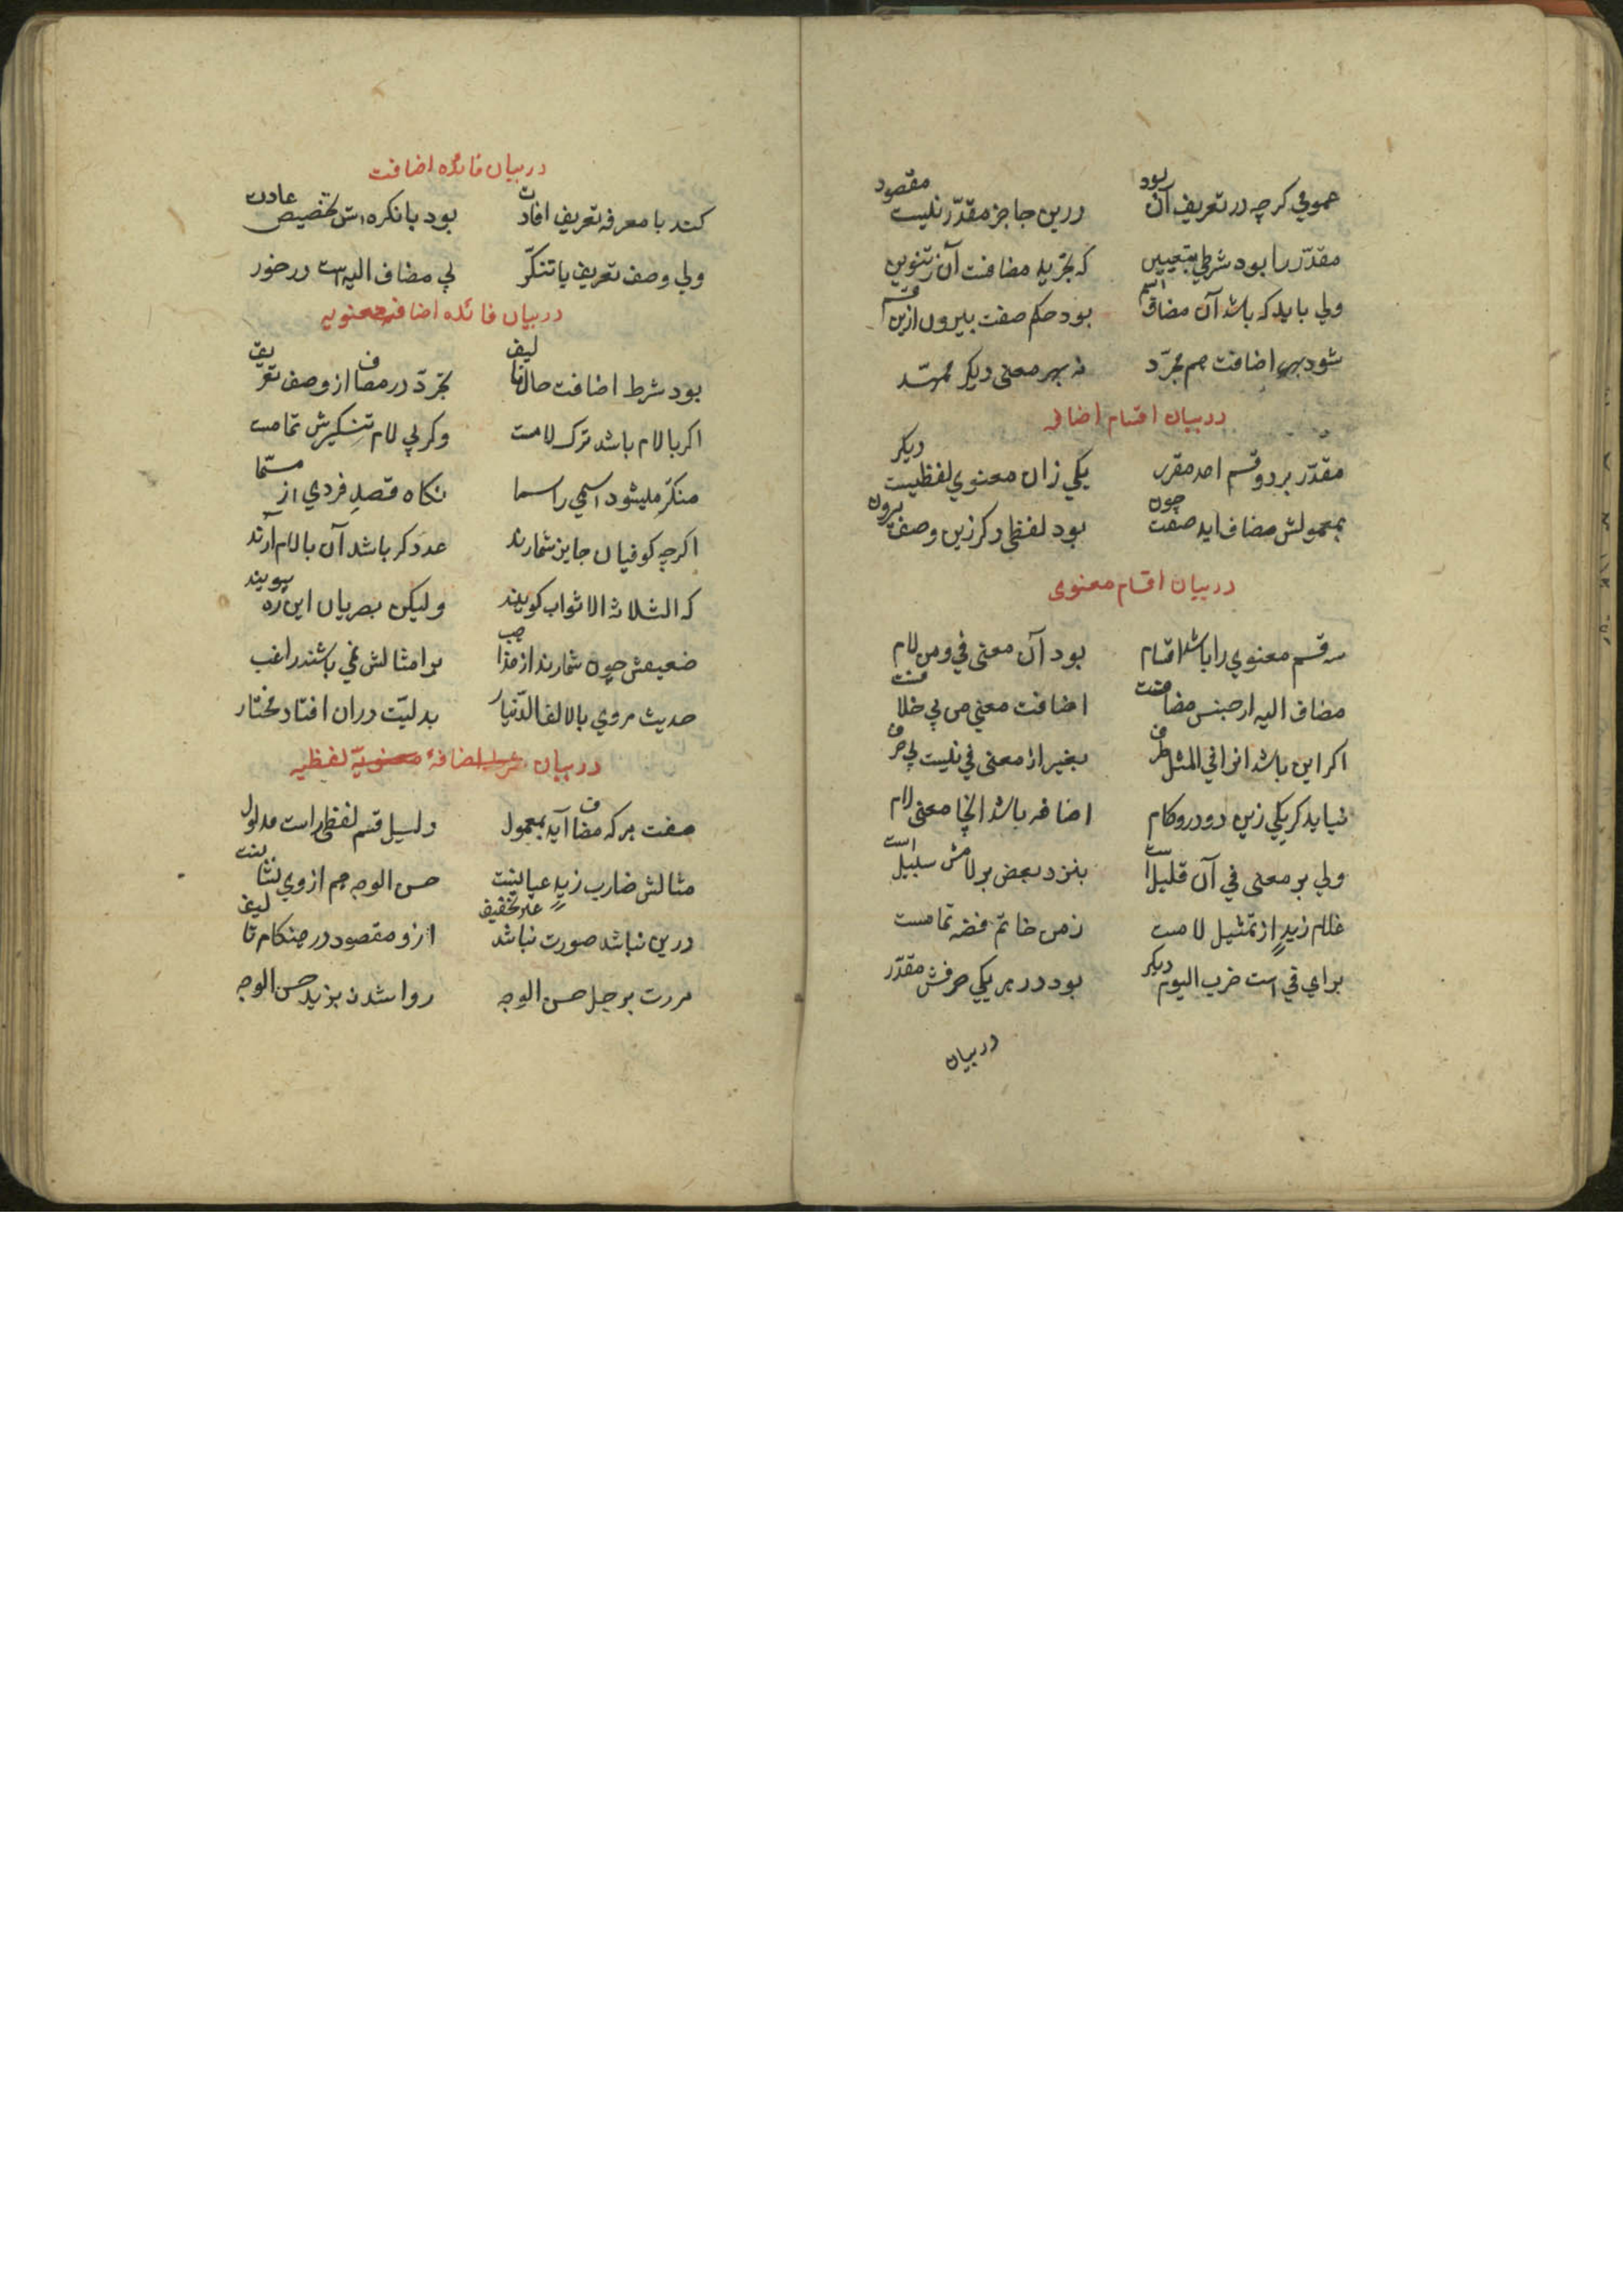 عمومي كرچه در تعريف آن بود درين جا جز مقدّر نيست مقصود
مقدّر را بود شرطي بتعيين كه تجريد مضافت آن ز تنوين
ولي بايد كه باشد آن مضاف اسم بود حكم صفت بيرون ازين قسم
شود بهر اضافت هم مجرّد نه بهر معنى ديكر ممهّد
در بيان اقسام اضافه
مقدّر بر دو قسم امد مقرر يكي زان معنوي لفظيست ديكر
بمعمولش مضاف ايد صفت چون بود لفظى وكر زين وصف بيرون
در بيان اقسام معنوى
سه قسم معنوي را باشد اقسام بود آن معنى في و من لام
مضاف اليه از جنس مضافت اضافت معني من بي خلافست
اكر اين باشد انرا في المثل ظرف بغير از معنى في نيست بي حرف
نيايد كر يكي زين دو درو كام اضافه باشد انجا معنى لام
ولي بر معنى في آن قليل است بنزد بعض بر لامش سبيل است
غلام زيدٍ از تمثيل لامست ز من خاتم فضه تمامست
براي في است ضرب اليوم ديكر بود در هر يكي حرفش مقدّر
در بيان
در بيان فائده اضافت
كند با معرفه تعريف افادت بود با نكره اش تخصيص عادت
ولي وصف تعريف يا تنكّر بي مضاف اليه است در خور
در بيان فائده اضافه معنويه
بود شرط اضافت حال تاليف تجرّد در مضاف از وصف تعريف
اكر با لام باشد ترك لامست وكر بي لام تنكيرش تمامست
منكّر ميشود اسمي را سما نكاه قصد فردي از مسمّا
اكرچه كوفيان جايز شمارند عدد كر باشد آن با لام آرند
كه الثلاثة الاثواب كويند وليكن بصريان اين ره پويند
ضعيفش چون شمارند از مذاهب بر امثالش نمي باشند راغب
حديث مروي بالالف الدّنيار بدليّت دران افتاد مختار
در بيان شرط اضافهٔ معنويّة لفظيه
صفت هر كه مضاف آيد بمعمول دليل قسم لفظى راست مدلول
مثالش ضارب زيدٍ عيانست حسن الوجه هم از وي نشانست
درين نباشد صورت نباشد غير تخفيف ازو مقصود در هنكام تاليف
مررت برجل حسن الوجه روا شد نه بزيد حسن الوجه